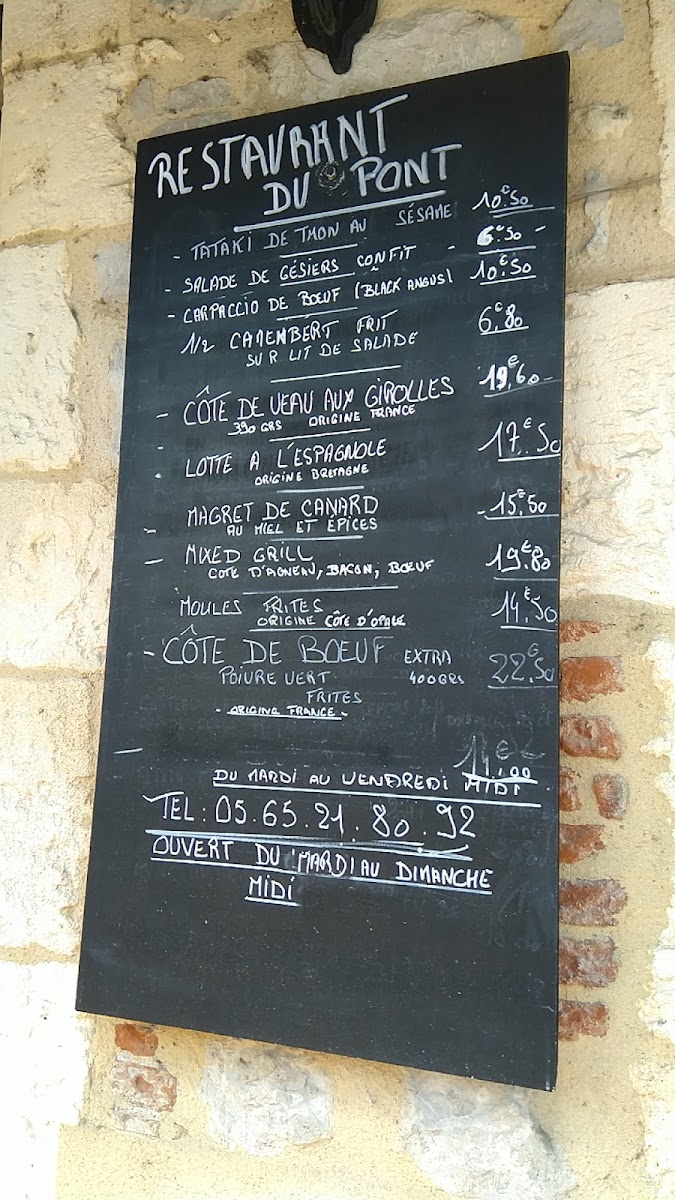 RESTAURANT
DU PONT
- TATAKI DE THON AU SÉSAME 10€50
- SALADE DE GÉSIERS CONFIT - 6€50 -
- CARPACCIO DE BŒUF (BLACK ANGUS) 10€50
1/2 CAMEMBERT FRIT 6€80
SUR LIT DE SALADE
- CÔTE DE VEAU AUX GIROLLES 19€60
390 GRS ORIGINE FRANCE
LOTTE A L'ESPAGNOLE 17€50
ORIGINE BRETAGNE
MAGRET DE CANARD 15€50
AU MIEL ET ÉPICES
- MIXED GRILL 19€80
COTE D'AGNEAU, BACON, BŒUF
MOULES FRITES 14€50
ORIGINE CÔTE D'OPALE
- CÔTE DE BOEUF EXTRA 22€50
POIVRE VERT 400GRS
FRITES
- ORIGINE FRANCE -
DU MARDI AU VENDREDI MIDI
TEL : 05.65.21.80.92
OUVERT DU MARDI AU DIMANCHE
MIDI